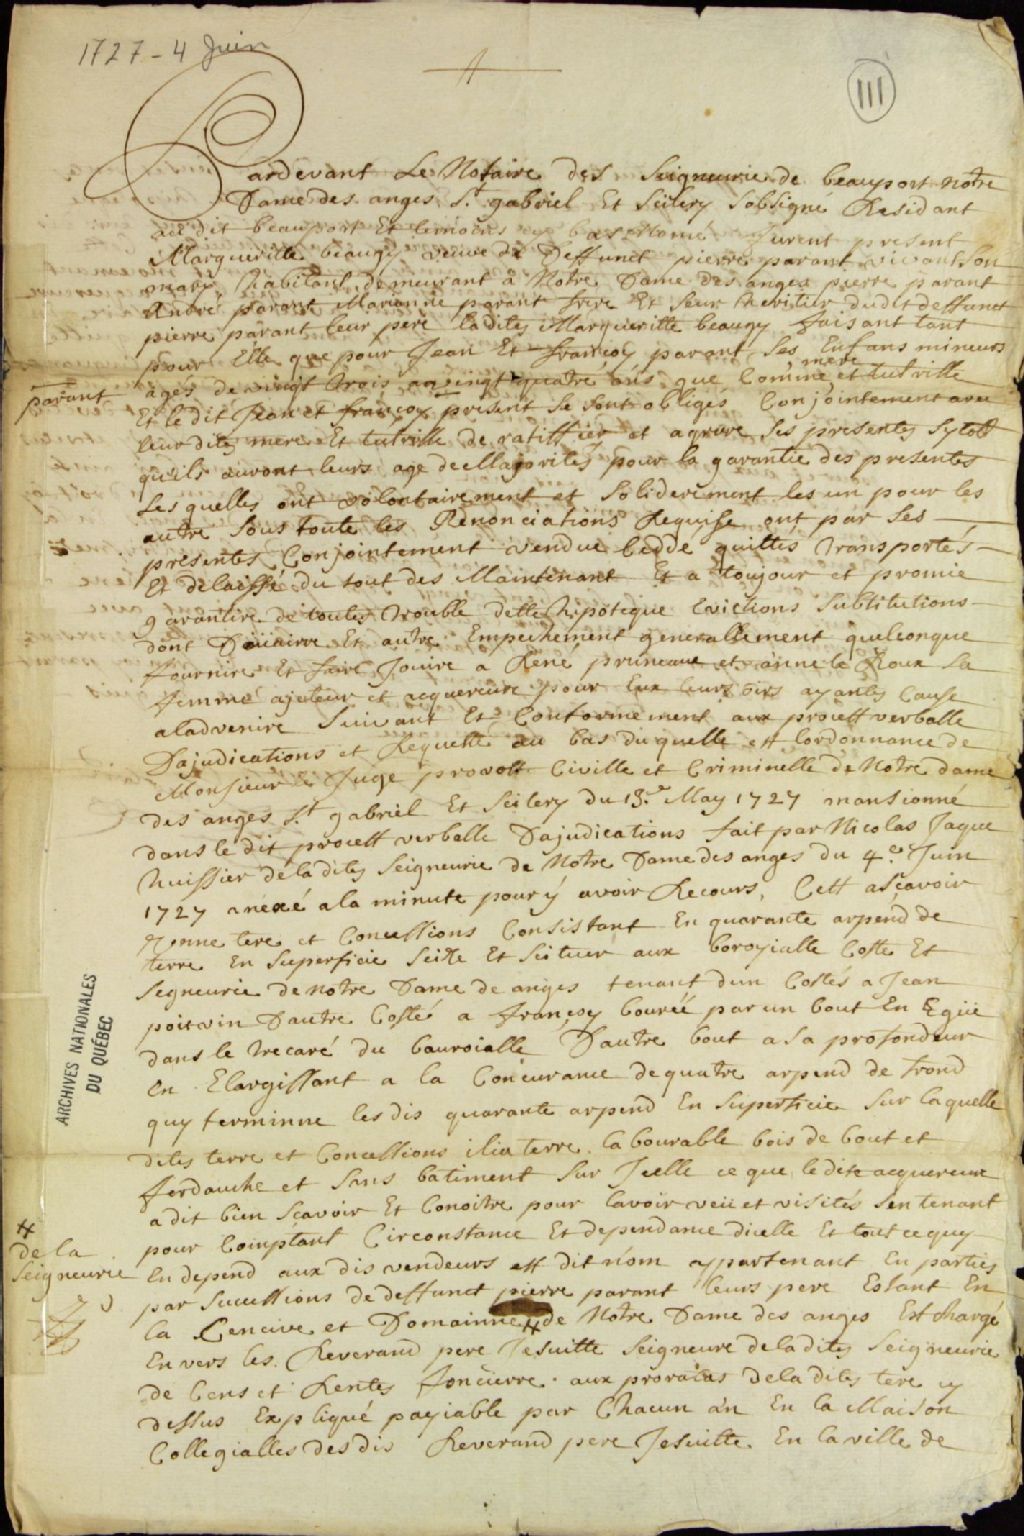 1727 - 4 Juin
III
Pardevant Le Notaire des Seigneurie de beauport notre
Dame des anges St gabriel Et Scilery Sobsigné Residant
au dit beauport Et temoins cy bas Nomé furent present
Marguerille beaugy veuve de Deffunct pierre parant vivant Son
mary habitant demeurant à Notre Dame des anges pierre parant
André parant Marianne parant frere Et Seur heritier dudit deffunct
pierre parant leur pere ladites Marguerille beaugy faisant tant
pour Elle que pour Jean Et françois parant Ses Enfans mineurs
âges de vingt trois a vingt quatre ans que Comme mere et tutrille
parant
Et le dit Jean et françoy present Se sont obliges Conjointement avec
leur dites mere Et tutrille de ratiffier et agreve Ses presentes Sytott
qu'ils auront leurs age de Majorites pour la garantie des presentes
Les quelles ont volontairement et Soliderement les un pour les
autre Sous toute les Renonciations Requise ont par Ses
presentes Conjointement vendue Cedde quittes transportés
Et delaissé du tout des Maintenant Et a toujour et promie
garantire de toutes trouble dette hipoteque Evictions Subtitutions
dont Douairre Et autre Empechement generallement quelconque
fournire Et faire Jouire a René pruneaux et anne le Roux Sa
femme ajuteur et acquereure pour Eux leurs oirs ayantes Cause
aladvenire Suivant Et Conformement aux proiett verballe
Dajudications et Requette au bas du quelle est lordonnance de
Monsieur le Juge provott Civille et Criminelle de Notre dame
des anges St gabriel Et Scilery du 13e May 1727 mansionné
dans le dit proiett verballe Dajudications fait par Nicolas Jaque
huissier de ladites Seigneurie de Notre Dame des anges du 4e Juin
1727 anexé a la minute pour y avoir Recours, Cett ascavoir
Une tere et Concessions Consistant En quarante arpend de
terre En Superficie Seize Et Scituer aux boroyialle Coste Et
Segneurie de notre Dame de anges tenant dun Costés a Jean
poitvin Dautre Costé a françoy bouréé par un bout En Eguë
dans le trecaré du bauroialle Dautre bout a Sa profondeur
En Elargissant a la Concurance de quatre arpend de frond
quy terminne les dis quarante arpend En Superficie Sur laquelle
dites terre et Concessions ilia terre labourable bois de bout et
ferdauche et Sans batiment Sur Jcelle ce que le dite acquereure
a dit bien Scavoir Et Conoitre pour lavoir veü et visités Sen tenant
pour Comptant Circonstance Et dependance dicelle Et tout ce quy
En depend aux dis vendeurs est dit nom appartenant En parties
par Sucessions de deffunct pierre parant leurs pere Estant En
la Cencive et Domainne # de Notre Dame des anges Est chargé
# de la
Seigneurie
En vers les Reverand pere Jesuitte Seigneure de ladites Seigneurie
de Cens et Rentes foncierre aux proratas de ladites tere cy
dessus Expliqué payiable par Chacun an En la Maison
Collegialles des dis Reverand pere Jesuitte En la ville de
ARCHIVES NATIONALES
DU QUÉBEC